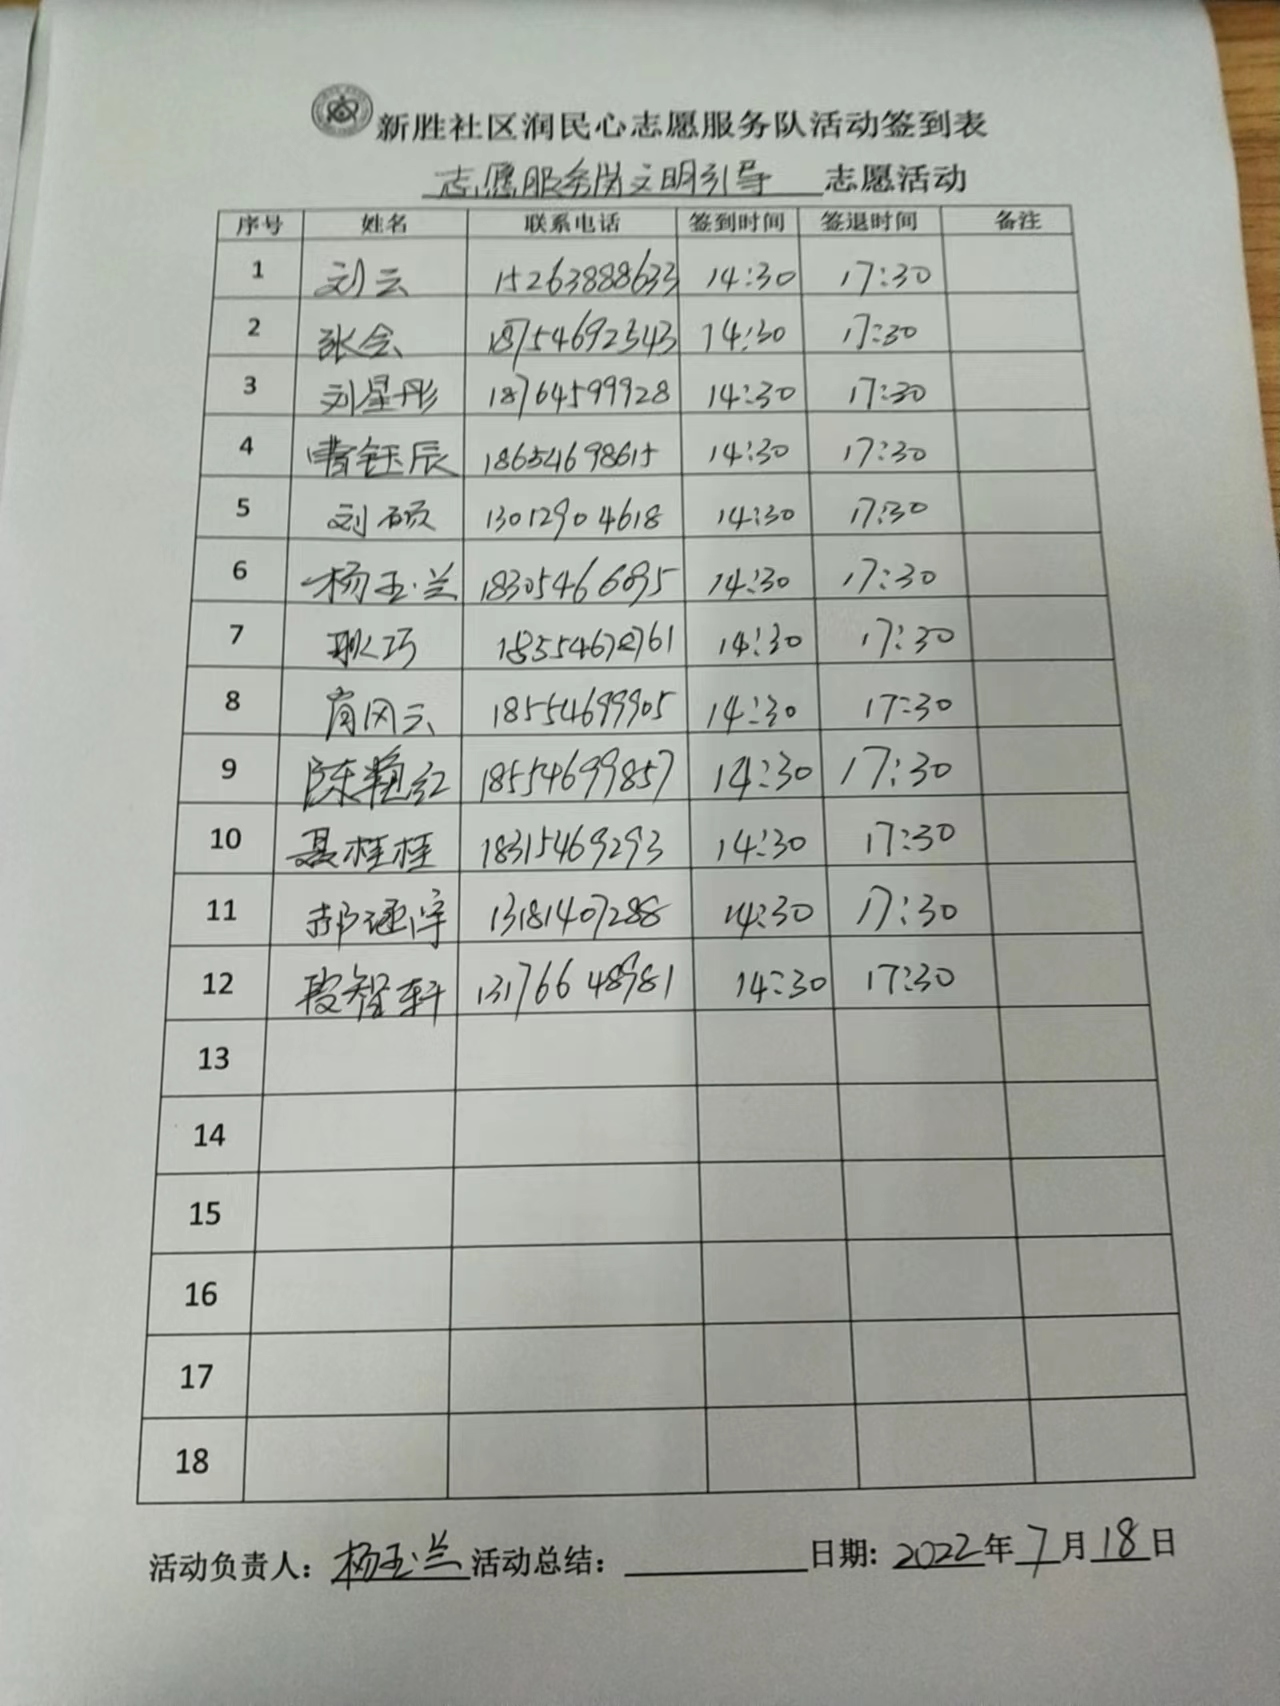 新胜社区润民心志愿服务队活动签到表
志愿服务岗文明引导 志愿活动
序号 姓名 联系电话 签到时间 签退时间 备注
1 刘云 15263888633 14:30 17:30
2 张会 18754692343 14:30 17:30
3 刘星彤 18764599928 14:30 17:30
4 曹钰辰 18654698615 14:30 17:30
5 刘硕 13012904618 14:30 17:30
6 杨玉兰 18305466095 14:30 17:30
7 耿巧 14:30 17:30
8 肖冈云 18554699905 14:30 17:30
9 陈艳红 18554699857 14:30 17:30
10 聂桂桂 18315469293 14:30 17:30
11 郝涵宇 13181407288 14:30 17:30
12 段智轩 13176648981 14:30 17:30
13
14
15
16
17
18
活动负责人：杨玉兰 活动总结： 日期: 2022年7月18日